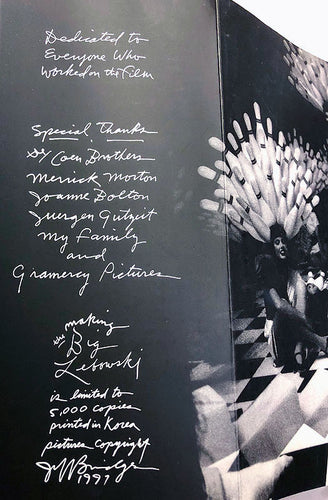 Dedicated to
Everyone Who
Worked on the Film
Special Thanks
the Coen Brothers
Merrick Morton
Joanne Bolton
Juergen Gutzeit
my Family
and
Gramercy Pictures
making
the Big
Lebowski
is limited to
5,000 copies
printed in Korea
pictures copyright
Jeff Bridges
1997